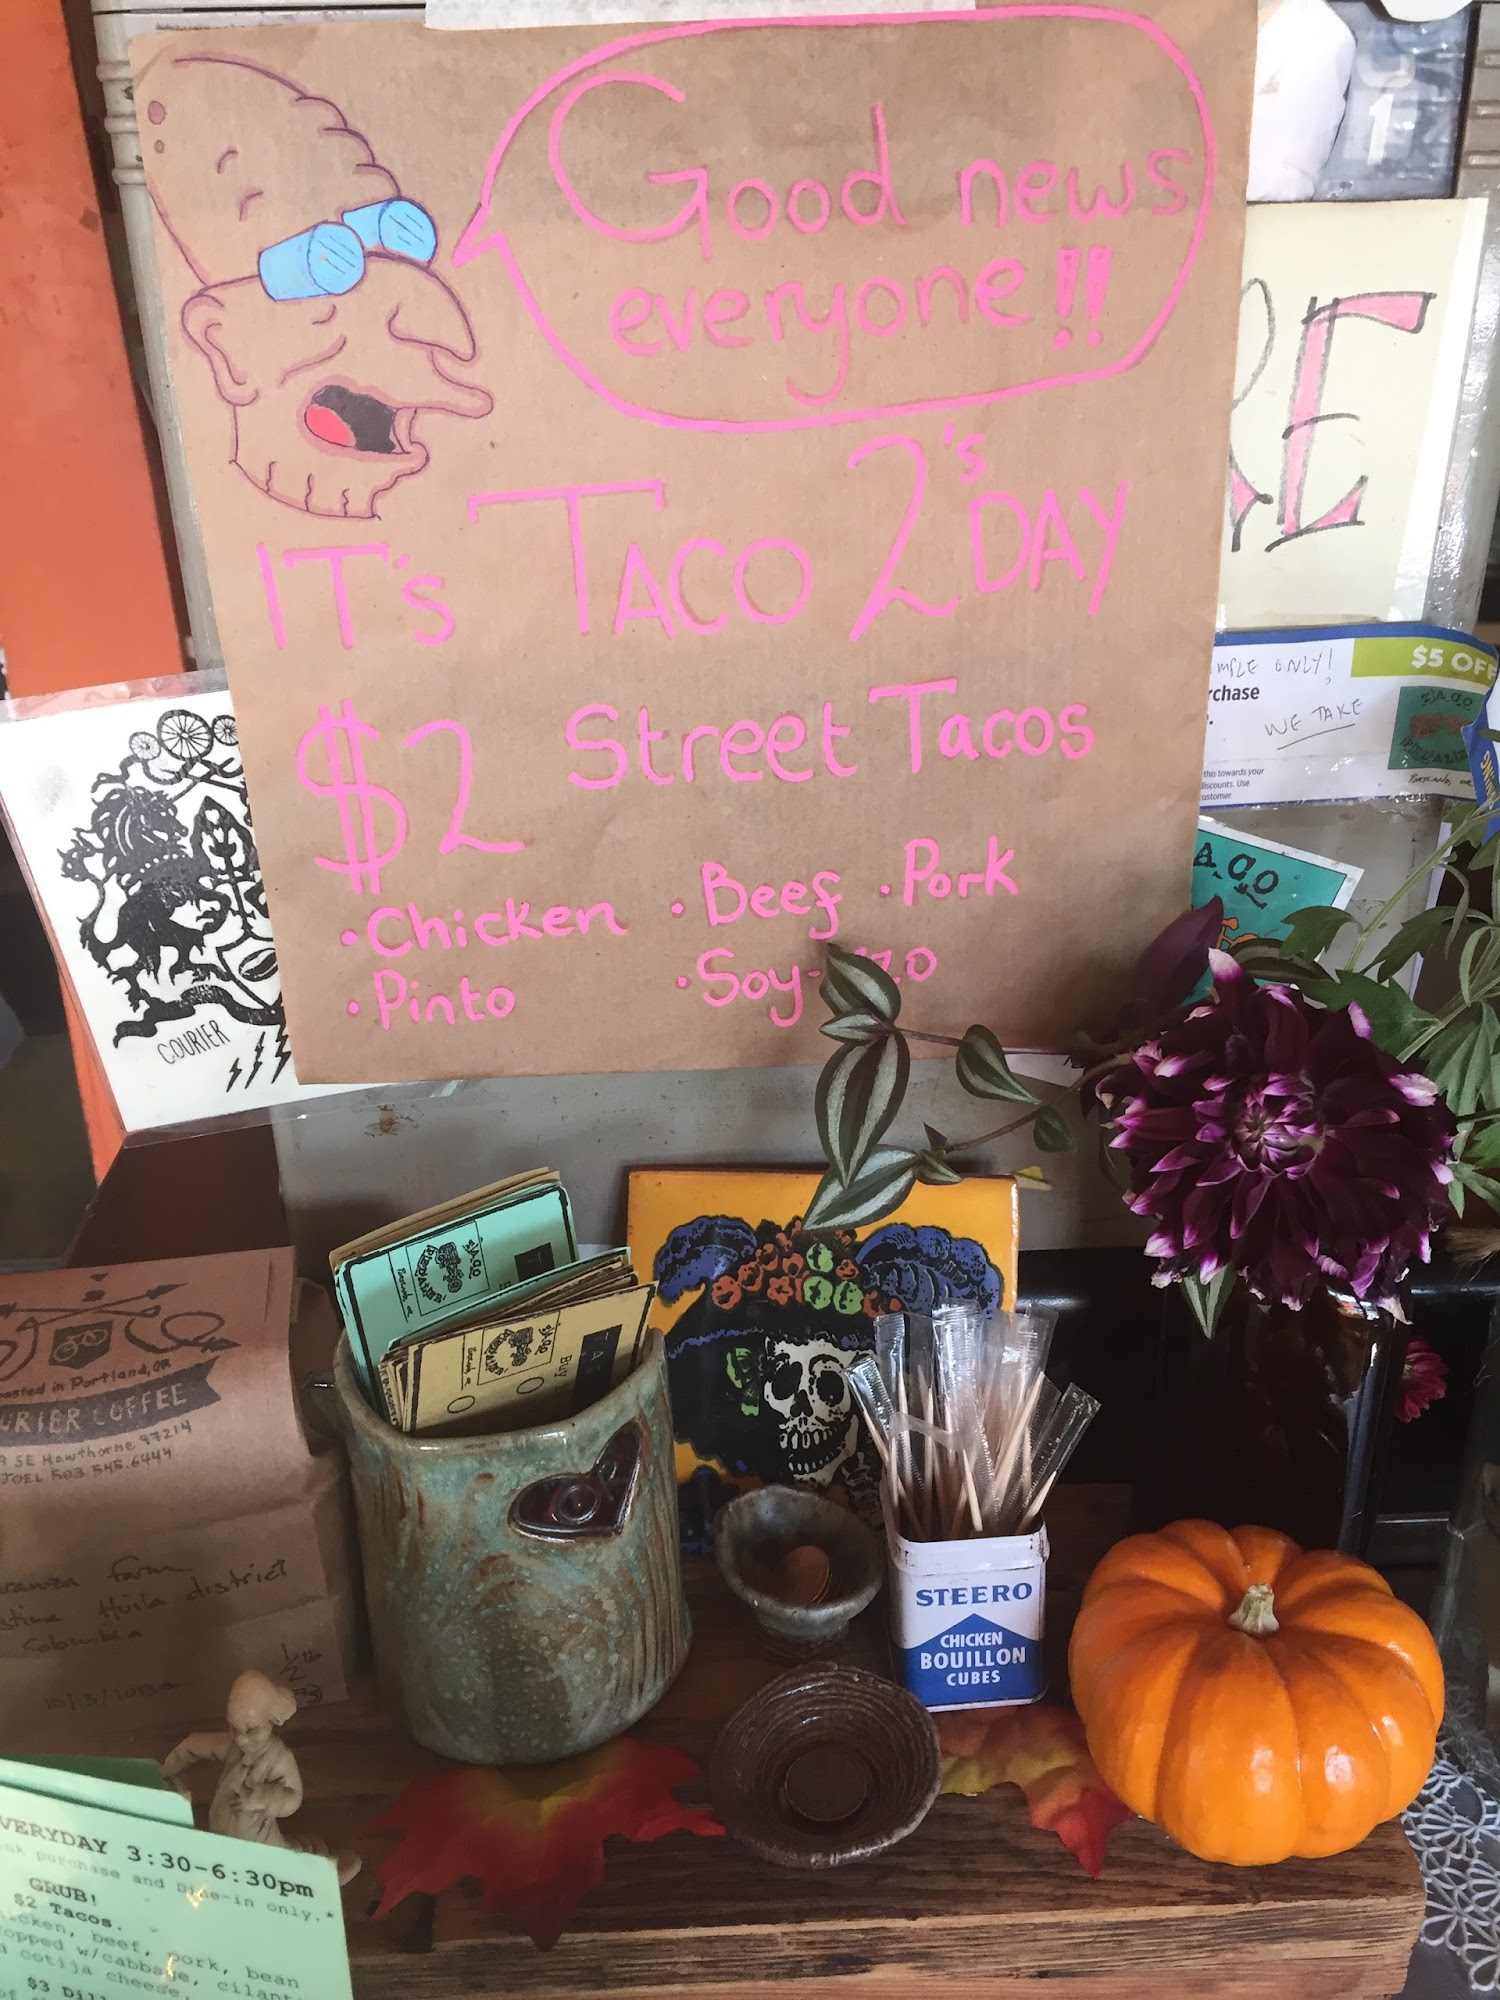 Good news
everyone!!
IT's TACO 2's DAY
$2 Street Tacos
• Chicken • Beef • Pork
• Pinto • Soy-
1
RE
ONLY!
$5 OFF
rchase
WE TAKE
this towards your
discounts. Use
customer.
COURIER
Buy
Portland, OR
URIER COFFEE
SE Hawthorne 97214
JOEL 503.545.6444
farm
Huila district
Colombia
1/2 lb
STEERO
CHICKEN
BOUILLON
CUBES
VERYDAY 3:30-6:30pm
purchase and Dine-in only.*
GRUB!
$2 Tacos.
icken, beef, pork, bean
opped w/cabbage,
cotija cheese.